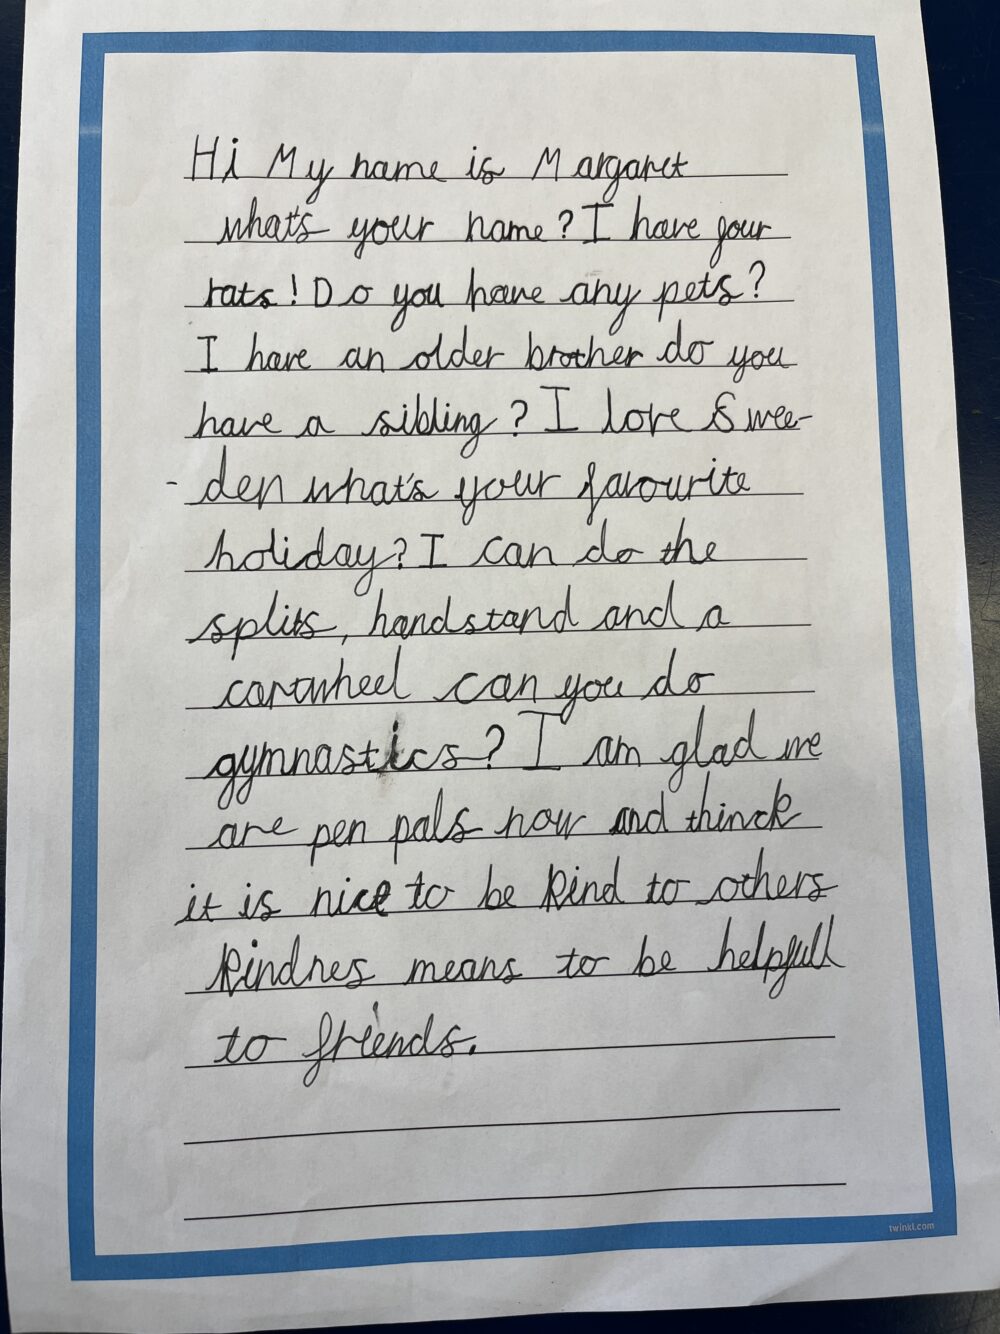 Hi My name is Margaret
what's your name? I have four
rats! Do you have any pets?
I have an older brother do you
have a sibling? I love Swee-
-den what's your favourite
holiday? I can do the
splits, handstand and a
cartwheel can you do
gymnastics? I am glad we
are pen pals now and thinck
it is nice to be kind to others
kindnes means to be helpfull
to friends.
twinkl.com